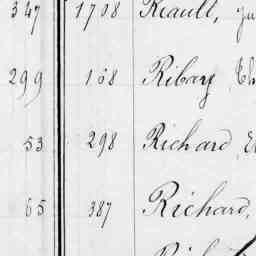 347 1708 Reault,
299 168 Ribary
53 298 Richard
65 387 Richard,